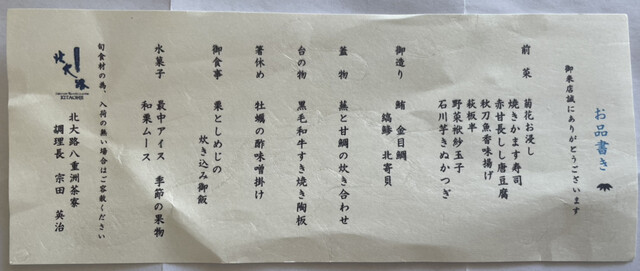 お品書き
御来店誠にありがとうございます
前菜
菊花お浸し
焼きかます寿司
赤甘長しし唐豆腐
秋刀魚香味揚げ
萩板半
野菜袱紗玉子
石川芋きぬかつぎ
御造り
鮪 金目鯛
縞鰺 北寄貝
蓋物
蕪と甘鯛の炊き合わせ
台の物
黒毛和牛すき焼き陶板
箸休め
牡蠣の酢味噌掛け
御食事
栗としめじの
炊き込み御飯
水菓子
最中アイス 季節の果物
和栗ムース
旬食材の為、入荷の無い場合はご容赦ください
北大路八重洲茶寮
調理長 宗田 英治
北大路
KITAOHJI